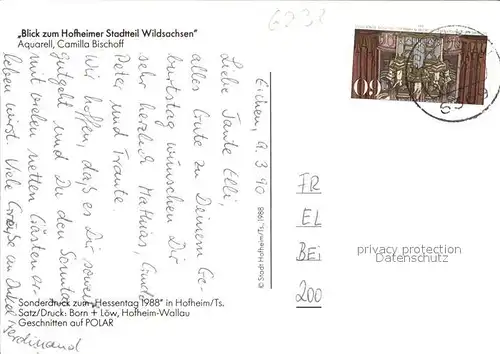 „Blick zum Hofheimer Stadtteil Wildsachsen“
Aquarell, Camilla Bischoff
Eichen, 9.3.90
Liebe Tante Elli,
alles Gute zu Deinem Ge-
burtstag wünschen Dir
sehr herzlich Mathias,
Peter und Traute.
Wir hoffen, daß es Dir soweit
gutgeht und Du den Sonntag
mit vielen netten Gästen er-
leben wirst. Viele Grüße an Onkel
Ferdinand
© Stadt Hofheim/Ts. 1988
Sonderdruck zum „Hessentag 1988“ in Hofheim/Ts.
Satz/Druck: Born + Löw, Hofheim-Wallau
Geschnitten auf POLAR
60
FR
EL
BEi
200
privacy protection
Datenschutz